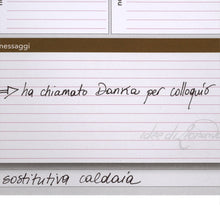 messaggi
⇒ ha chiamato Danka per colloquio
idee di
sostitutiva caldaia